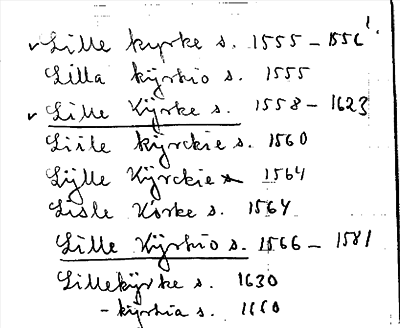 ✓ Lille kyrke s. 1555 – 1556
Lilla kÿrkio s. 1555
✓ Lille Kÿrke s. 1558 – 1623
Liile kÿrckie s. 1560
Lÿlle Kÿrckie s 1564
Lisle Korke s. 1564
Lille Kÿrkio s. 1566 – 1581
Lillekÿrke s. 1630
– kÿrkia s. 1660